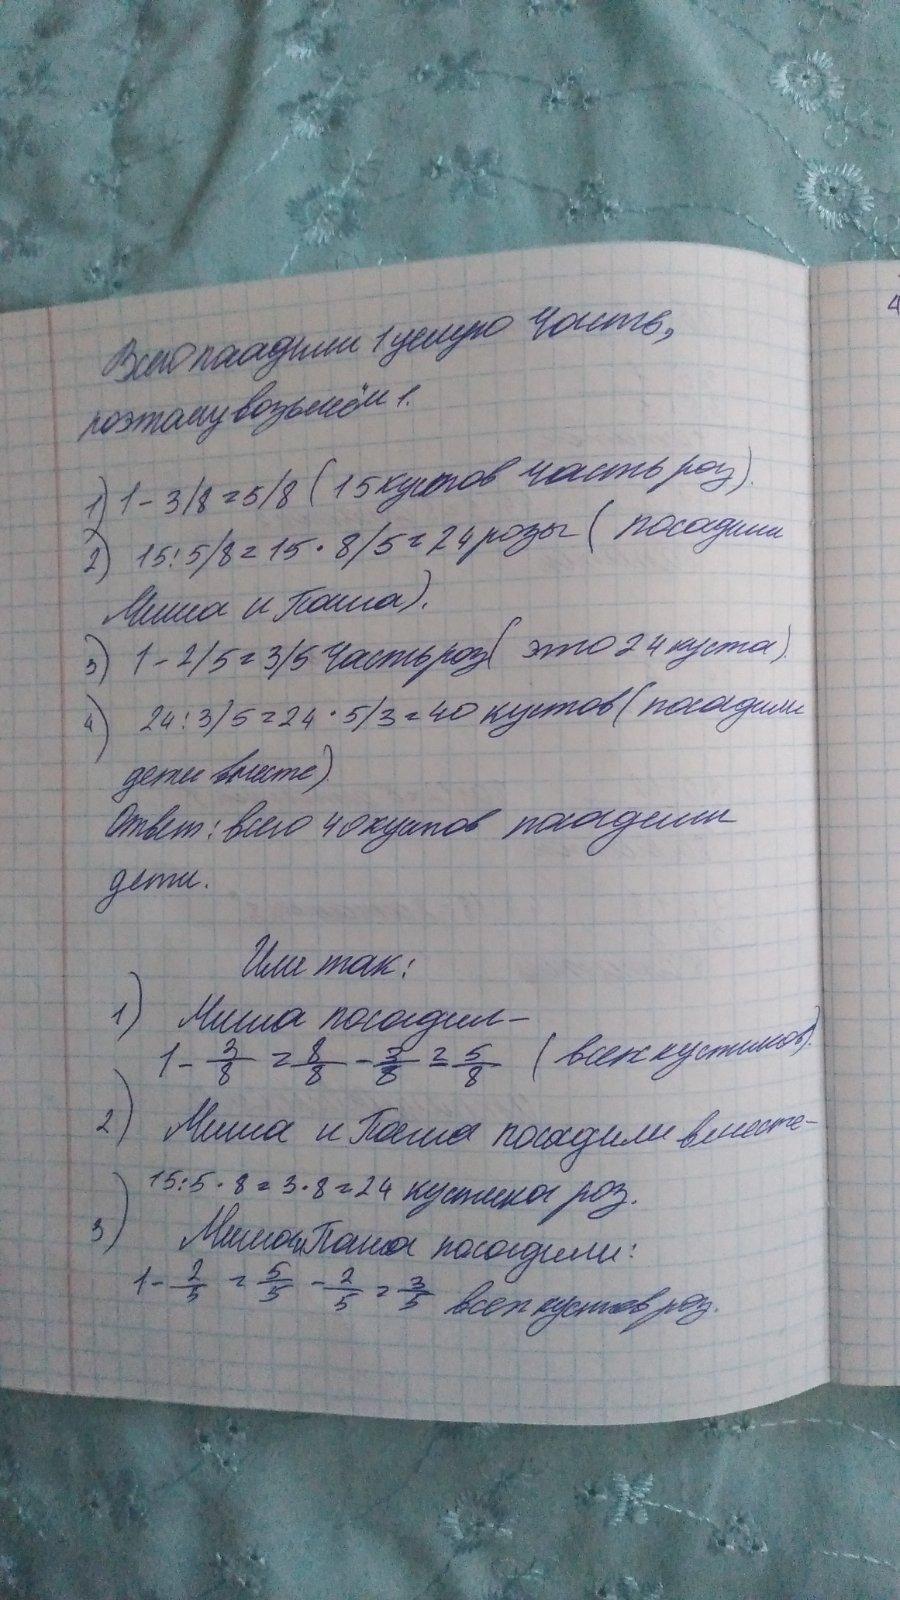 Всего посадили 1 целую часть,
поэтому возьмём 1.
1) 1 - 3/8 = 5/8 ( 15 кустов часть роз).
2) 15 : 5/8 = 15 · 8/5 = 24 розы ( посадили
Миша и Паша).
3) 1 - 2/5 = 3/5 часть роз( это 24 куста).
4) 24 : 3/5 = 24 · 5/3 = 40 кустов ( посадили
дети вместе)
Ответ : всего 40 кустов посадили
дети.
Или так :
1) Миша посадил -
1 - 3/8 = 8/8 - 3/8 = 5/8 ( всех кустиков).
2) Миша и Паша посадили вместе -
15 : 5 · 8 = 3 · 8 = 24 кустика роз.
3) Миша и Паша посадили :
1 - 2/5 = 5/5 - 2/5 = 3/5 всех кустов роз.
4